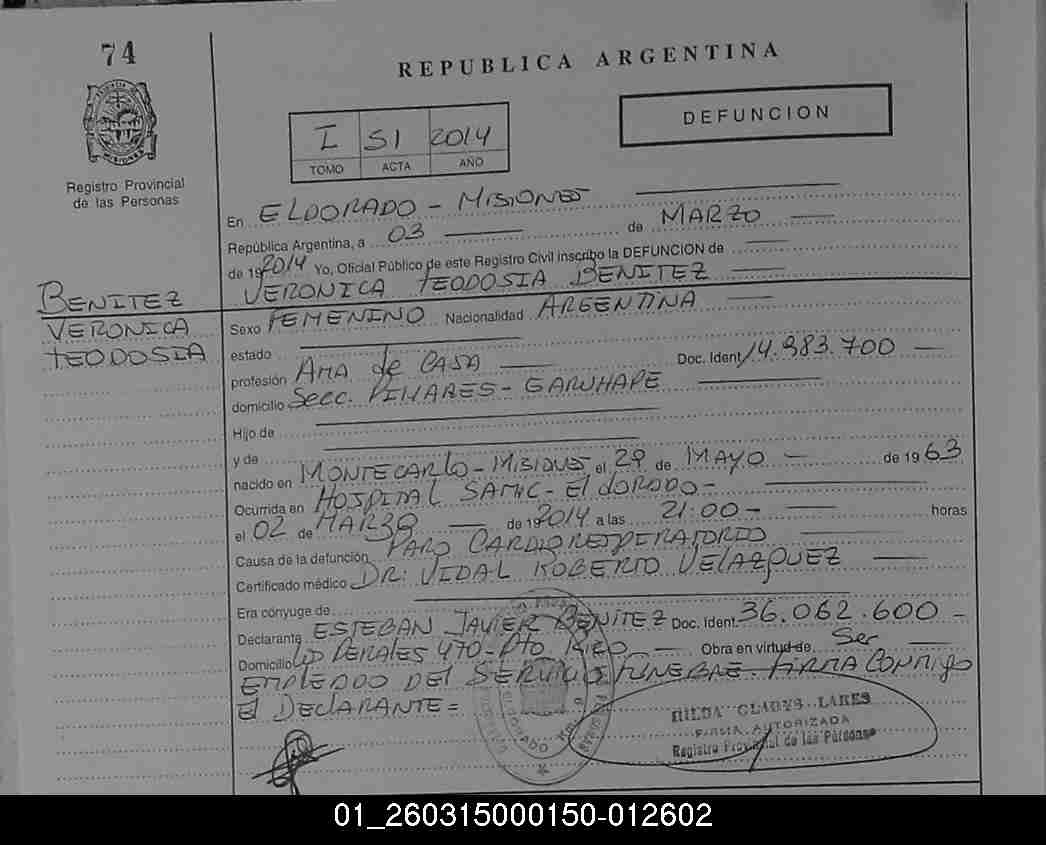 74
REPUBLICA ARGENTINA
DEFUNCION
I SI 2014
TOMO ACTA AÑO
Registro Provincial
de las Personas
En ELDORADO - MISIONES
República Argentina, a 03 de MARZO
de 19 2014 Yo, Oficial Público de este Registro Civil inscribo la DEFUNCION de
VERONICA TEODOSIA BENITEZ
BENITEZ
VERONICA
TEODOSIA
Sexo FEMENINO Nacionalidad ARGENTINA
estado
profesión AMA de CASA Doc. Ident. 14.983.700
domicilio Secc. PINARES - GARUHAPE
Hijo de
y de
nacido en MONTECARLO - MISIONES el 29 de MAYO de 1963
Ocurrida en HOSPITAL SAMIC - El DORADO -
el 02 de MARZO de 19 2014 a las 21:00 - horas
Causa de la defunción PARO CARDIORESPIRATORIO
Certificado médico DR: VIDAL ROBERTO VELAZQUEZ
Era cónyuge de
Declarante ESTEBAN JAVIER BENITEZ Doc. Ident. 36.062.600 -
Domicilio PERALES 470 - Pto. RICO Obra en virtud de Ser
EMPLEADO DEL SERVICIO FUNEBRE. FIRMA CONMIGO
El DECLARANTE =
HILDA GLADYS LARES
FIRMA AUTORIZADA
Registro Provincial de las Personas
01_260315000150-012602